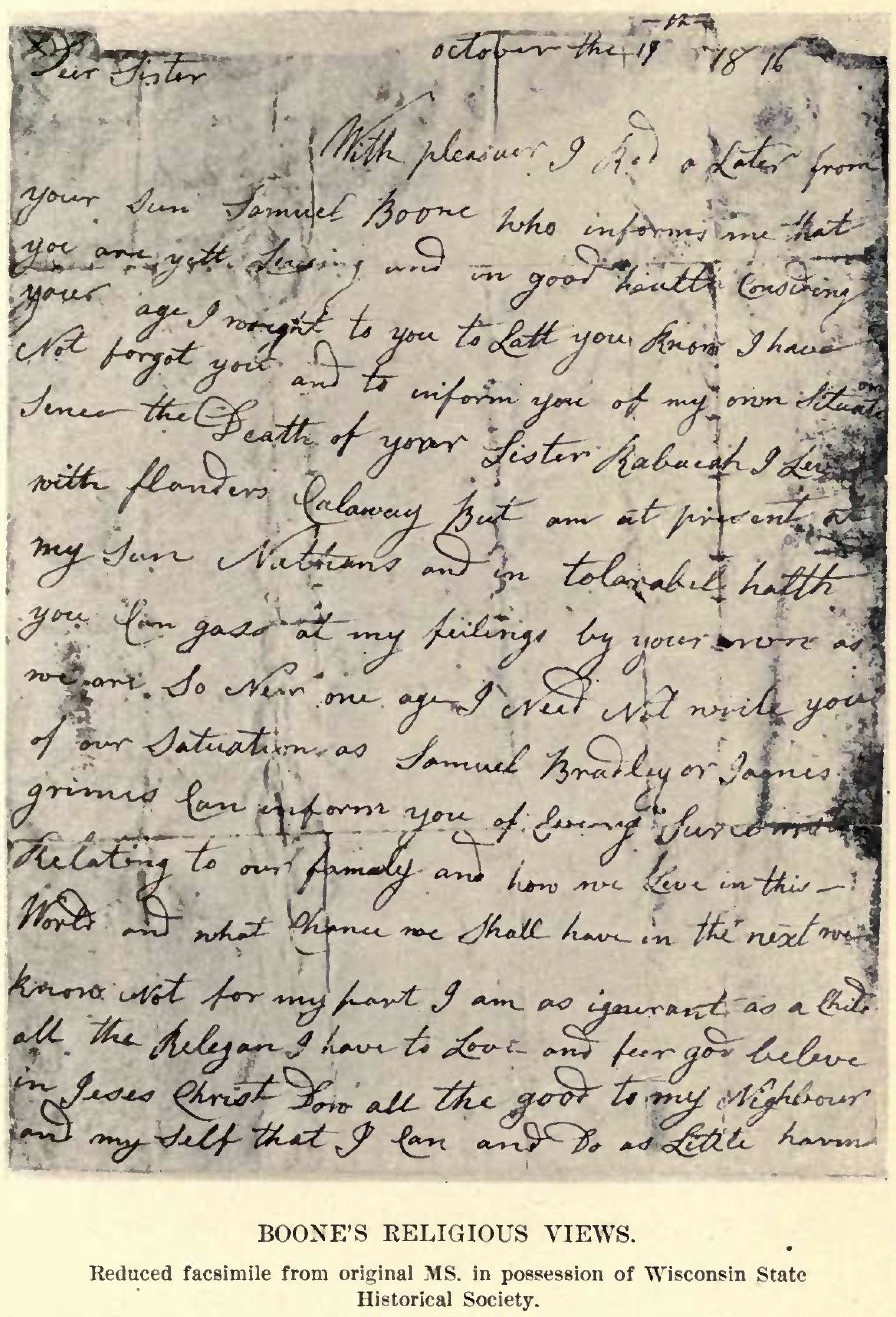 october the 19th 1816
Deer Sister
With pleasuer I Red a Later from
your Sun Samuel Boone who informs me that
you are yett Liveing and in good health Considing
your age I wright to you to Latt you know I have
Not forgot you and to inform you of my own Situation
Sence the Death of your Sister Rabacah I Leve
with flanders Calaway But am at present at
my Sun Nathans and in tolarabel halth
you Can gass at my feilings by your own as
we are So Near one age I Need Not write you
of our Satuation as Samuel Bradley or James
grimes Can inform you of Eveury Surcomstance
Relating to our famaly and how we Leve in this
World and what Chance we Shall have in the next we
know Not for my part I am as ignerant as a Child
all the Relegan I have to Love and fear god beleve
in Jeses Christ Dow all the good to my Nighbour
and my Self that I Can and Do as Little harm
BOONE'S RELIGIOUS VIEWS.
Reduced facsimile from original MS. in possession of Wisconsin State
Historical Society.